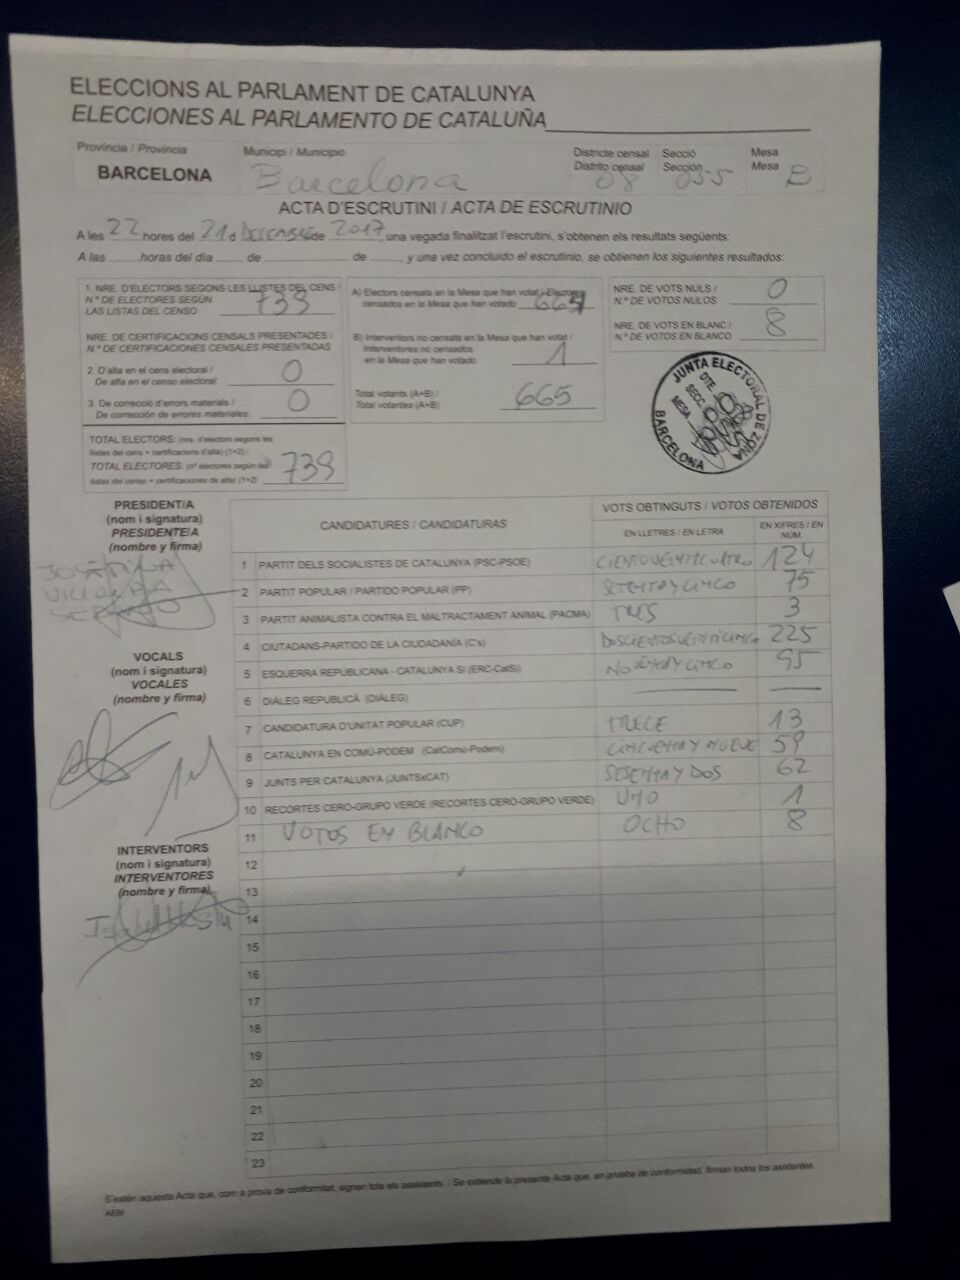 ELECCIONS AL PARLAMENT DE CATALUNYA
ELECCIONES AL PARLAMENTO DE CATALUÑA
Província / Provincia
Municipi / Municipio
Districte censal Secció Mesa
Distrito censal Sección Mesa
BARCELONA Barcelona 08 B
ACTA D'ESCRUTINI / ACTA DE ESCRUTINIO
A les 22 hores del 21 d de 2017 una vegada finalitzat l'escrutini, s'obtenen els resultats següents:
A las ........horas del día ...... de ............ de ......, y una vez concluido el escrutinio, se obtienen los siguientes resultados:
1. NRE. D'ELECTORS SEGONS LES LLISTES DEL CENS /
N.º DE ELECTORES SEGÚN
LAS LISTAS DEL CENSO 739
NRE. DE CERTIFICACIONS CENSALS PRESENTADES /
N.º DE CERTIFICACIONES CENSALES PRESENTADAS
2. D'alta en el cens electoral /
De alta en el censo electoral: 0
3. De correcció d'errors materials /
De corrección de errores materiales: 0
TOTAL ELECTORS: (nre. d'electors segons les
llistes del cens + certificacions d'alta) (1+2) /
TOTAL ELECTORES: (nº electores según las
listas del censo + certificaciones de alta) (1+2) 739
A) Electors censats en la Mesa que han votat / Electores
censados en la Mesa que han votado 664
B) Interventors no censats en la Mesa que han votat /
Interventores no censados
en la Mesa que han votado 1
Total votants (A+B) /
Total votantes (A+B) 665
NRE. DE VOTS NULS /
N.º DE VOTOS NULOS 0
NRE. DE VOTS EN BLANC /
N.º DE VOTOS EN BLANCO 8
JUNTA ELECTORAL DE ZONA
DTE.
SECC.
MESA
BARCELONA
PRESIDENT/A
(nom i signatura)
PRESIDENTE/A
(nombre y firma)
VOCALS
(nom i signatura)
VOCALES
(nombre y firma)
INTERVENTORS
(nom i signatura)
INTERVENTORES
(nombre y firma)
CANDIDATURES / CANDIDATURAS
VOTS OBTINGUTS / VOTOS OBTENIDOS
EN LLETRES / EN LETRA
EN XIFRES / EN NÚM.
1 PARTIT DELS SOCIALISTES DE CATALUNYA (PSC-PSOE) 124
2 PARTIT POPULAR / PARTIDO POPULAR (PP) SETENTA Y CINCO 75
3 PARTIT ANIMALISTA CONTRA EL MALTRACTAMENT ANIMAL (PACMA) TRES 3
4 CIUTADANS-PARTIDO DE LA CIUDADANÍA (C's) 225
5 ESQUERRA REPUBLICANA - CATALUNYA SI (ERC-CatSí) 95
6 DIÀLEG REPUBLICÀ (DIÀLEG)
7 CANDIDATURA D'UNITAT POPULAR (CUP) TRECE 13
8 CATALUNYA EN COMÚ-PODEM (CatComú-Podem) CINCUENTA Y NUEVE 59
9 JUNTS PER CATALUNYA (JUNTSxCAT) SESENTA Y DOS 62
10 RECORTES CERO-GRUPO VERDE (RECORTES CERO-GRUPO VERDE) UNO 1
11 VOTOS EN BLANCO OCHO 8
12
13
14
15
16
17
18
19
20
21
22
23
S'estén aquesta Acta que, com a prova de conformitat, signen tots els assistents. / Se extiende la presente Acta que, en prueba de conformidad, firman todos los asistentes.
AEM